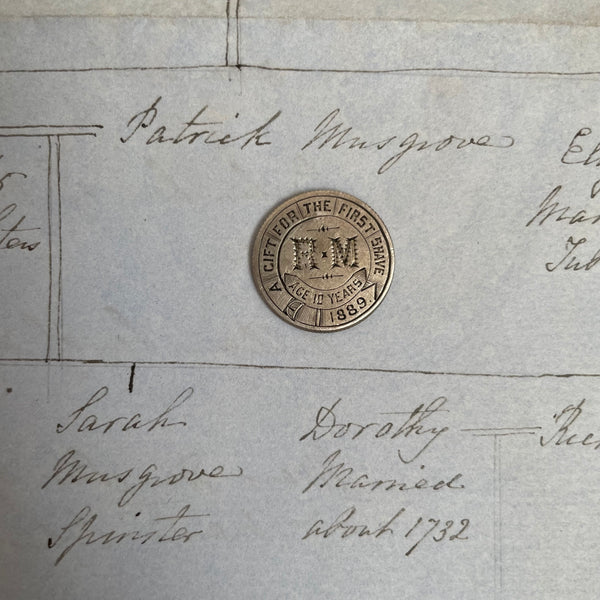 Patrick Musgrove
A GIFT FOR THE FIRST SHAVE
H · M
AGE 10 YEARS
1889.
Sarah
Musgrove
Spinster
Dorothy
Married
about 1732